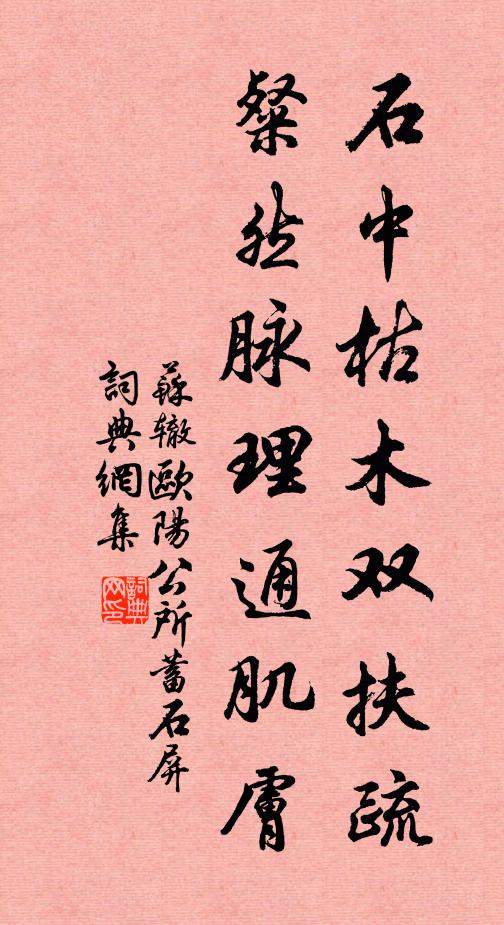 石中枯木双扶疏
粲然脉理通肌膚
蘇辙歐陽公所蓄石屏
詞典網集
詞典网印